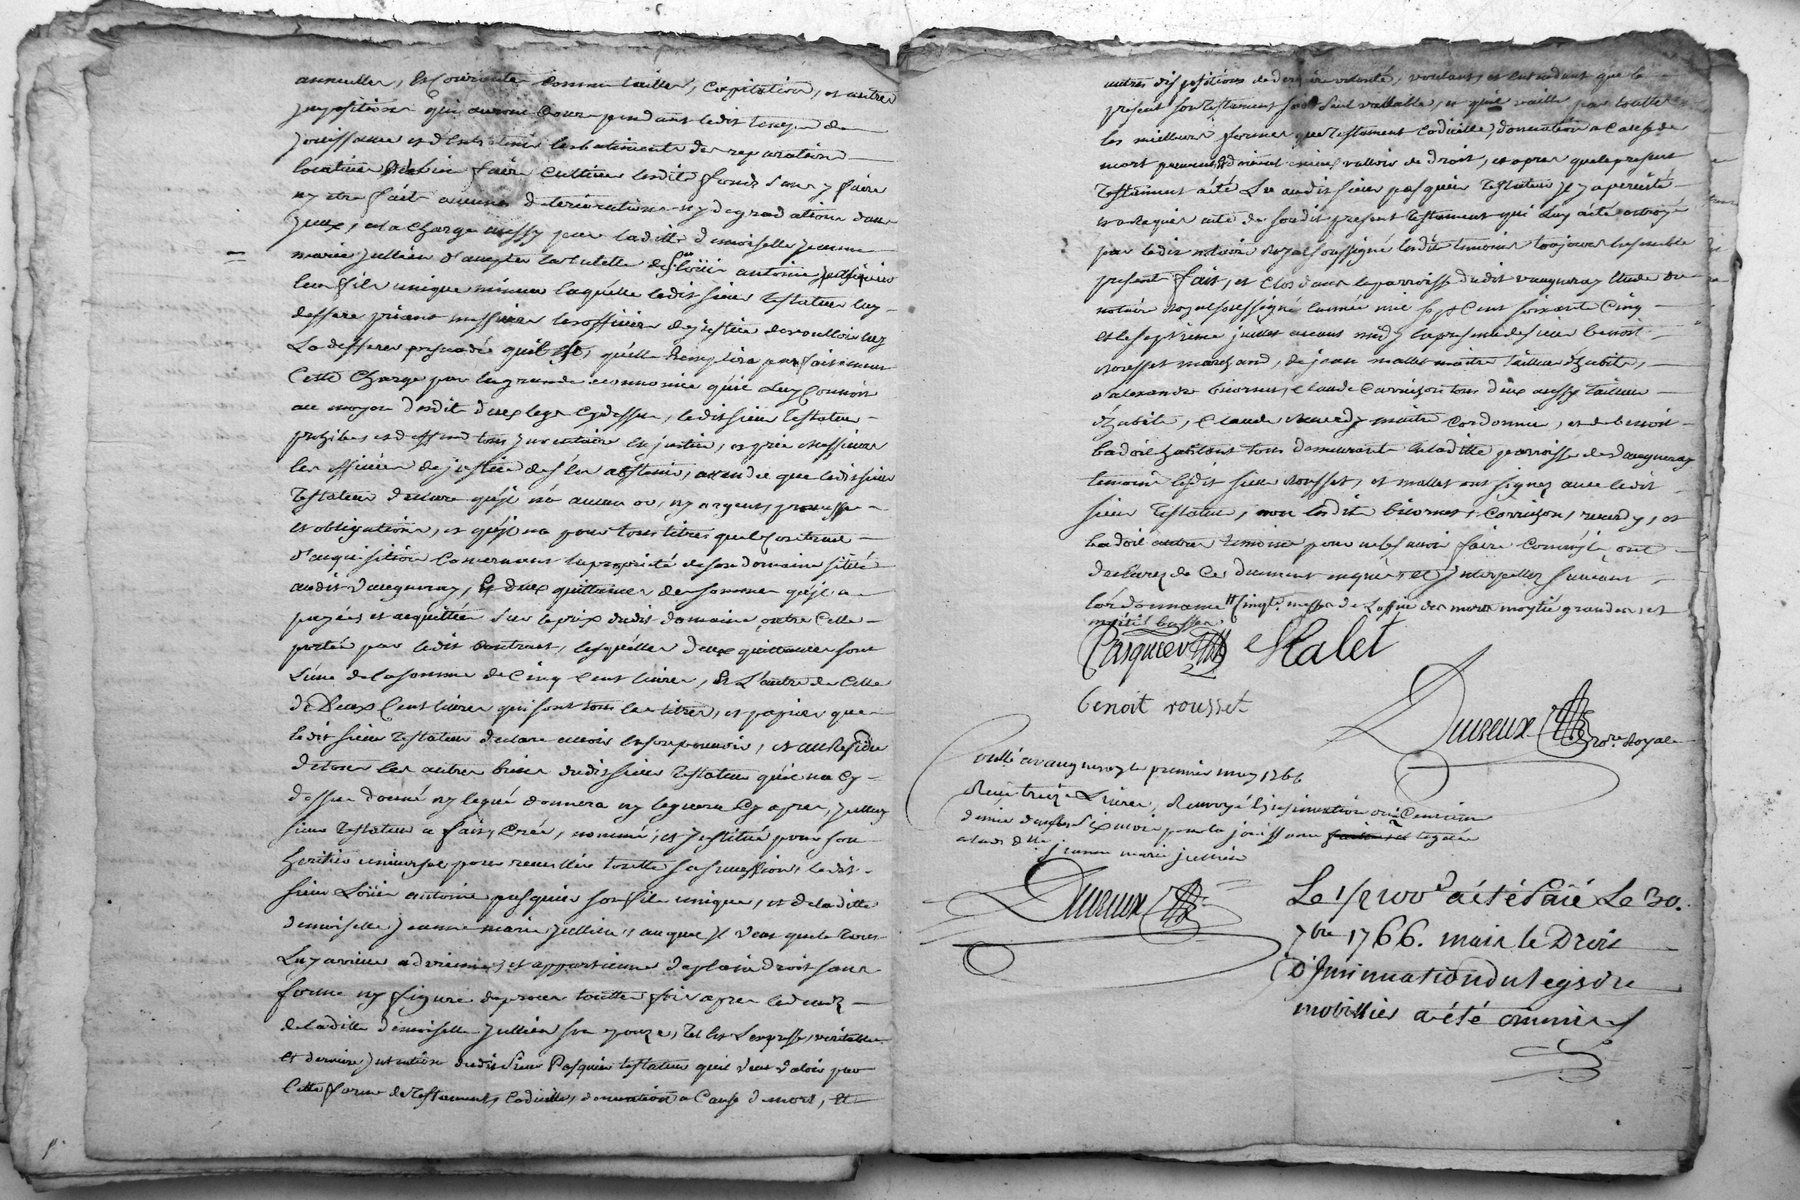 annuelles, et Courientes comme tailles, Capitation, et autres
jmpositions qui auront Cours pendant ledit temps de
jouissance et d'Entretenir les batiments des reparations
locatives faire Cultiver lesdits fonds sans y faire
ny etre fait aucunes deteriorations ny degradations dans
jceux, et a la Charge aussy par laditte demoiselle jeanne
marie jullien d'accepter la tutelle de Sr Loüis antoine pasquier
leur fils unique mineur laquelle ledit sieur Testateur luy
deffere priant messieurs les officiers de justice de vouloir luy
La defferer persuadé qu'elle Remplira parfaitement
Cette Charge par la grande economie qu'il Luy Connoit
au moyen dudit deux legs Cydessus, ledit sieur Testateur
prohibe et deffend tous jnventaire en justice, et prie messieurs
les officiers de justice de s'en abstenir, attendu que ledit sieur
Testateur declare qu'jl n'a aucun or, ny argent, promesse
et obligations, et qu'jl n'a pour tous titres que le Contrat
d'acquisition Concernant la proprieté de son domaine situé
audit vaugneray, Et deux quittances des sommes qu'jl a
payées et acquittées sur le prix dudit domaine, outre Celle
portée par ledit Contrat, lesquelles deux quittances sont
L'une de la somme de Cinq Cent livres, Et L'autre de Celle
de Deux Cent livres qui sont tous les titres, et papiers que
ledit sieur Testateur declare avoir en son pouvoir, et au Residu
de tous les autres biens dudit sieur Testateur qu'il n'a Cy
dessus donné ny legué donnera ny leguera Cy apres, jcelluy
sieur Testateur a fait, Créé, nommé, et jnstitué pour son
heritier universel pour recueillir toutte sa succession, ledit
sieur Loüis antoine pasquier son fils unique, et de laditte
demoiselle jeanne marie jullien, auquel jl veut que le tout
Luy arrive advienne, et appartienne de plain droit sans
forme ny figure de proces toutte fois apres le decez
de laditte demoiselle jullien sa Tel Est L'expresse, veritable
et derniere jntention dudit sieur Pasquier testateur qu'il veut valoir par
Cette forme de Testament, Codicille, donnation a Cause de mort, Et
autres dispositions de derniere volonté, voulant, et entendant que le
present son Testament soit seul vallable, et qu'il vaille par toutte
les meilleurs formes que Testament Codicille, donnation a Cause de
mort peuvent et doivent mieux valloir de droit, et apres que le present
Testament a été Lu audit sieur pasquier Testateur jl y a persisté
et a requis acte de son dit present Testament qui Luy a été octroyé
par ledit notaire Royal soussigné lesdits temoins toujours Ensemble
present fait, et Clos dans la parroisse dudit vaugneray Etude du
notaire royal soussigné l'année mil sept Cent soixante Cinq
et le septieme juillet avant midy En presence de sieur benoit
rousset marchand, de jean mallet maitre tailleur d'habits,
d'alexandre bicornet, Claude Carrichon tous deux aussy tailleur
d'habits, Claude maitre Cordonnier, et de benoit
badoil habitant tous demeurants en laditte parroisse de vaugneray
temoins lesdits sieur Rousset, et mallet ont signez avec ledit
sieur Testateur, non lesdits bicornet, Carrichon, et
badoil autres temoins pour ne le savoir faire Comme jls ont
declarez de Ce Dument enquis, et jnterpellez suivant
l'ordonnance Cinqte messes de L'office des morts moytié grandes, et
moitié basses
Pasquier Malet
benoit rousset
Dureux nore Royal
Conllé a vaugneray le premier may 1766
Receu treize Livres, Renvoyé l'jnsinuation
dans Six mois pour la jouissance leguée
a lad. dlle jeanne marie jullien
Dureux
Le 1/2 100e a été Païé Le 30.
7bre 1766. mais le Droit
D'Jnsinuation du legs de
mobillier a été ommis